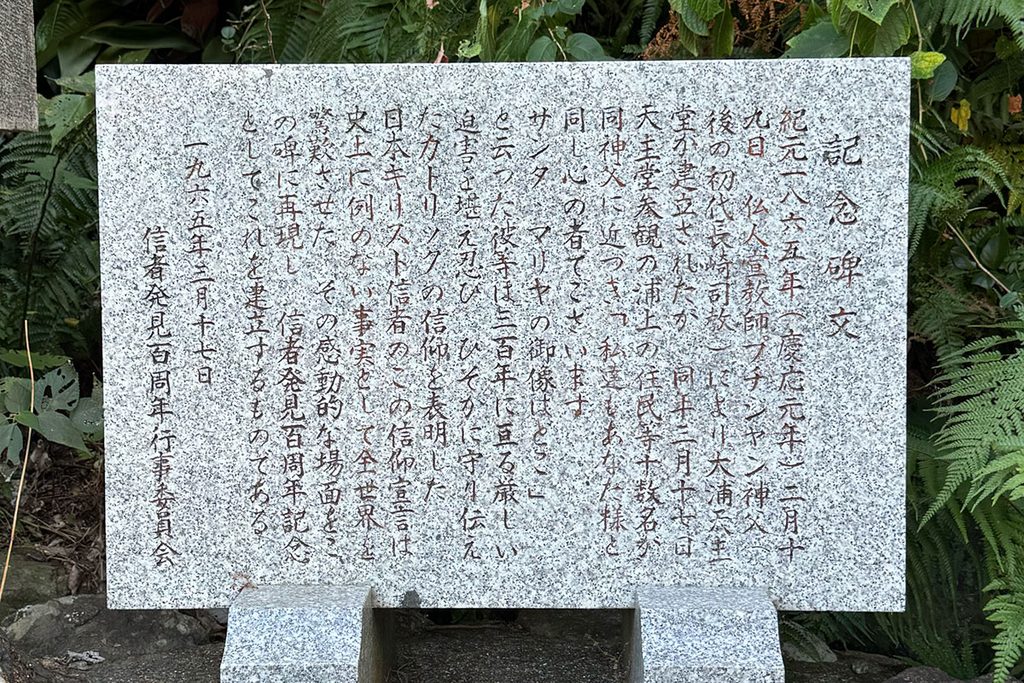 記念碑文
紀元一八六五年(慶応元年)二月十
九日 仏人宣教師プチジャン神父(
後の初代長崎司教)により大浦天主
堂が建立されたが 同年三月十七日
天主堂参観の浦上の住民等十数名が
同神父に近づき「私達もあなた様と
同じ心の者でございます
サンタ マリヤの御像はどこ」
と云った彼等は三百年に亘る厳しい
迫害を堪え忍び ひそかに守り伝え
たカトリックの信仰を表明した
日本キリスト信者のこの信仰宣言は
史上に例のない事実として全世界を
驚歎させた その感動的な場面をこ
の碑に再現し 信者発見百周年記念
としてこれを建立するものである
一九六五年三月十七日
信者発見百周年行事委員会